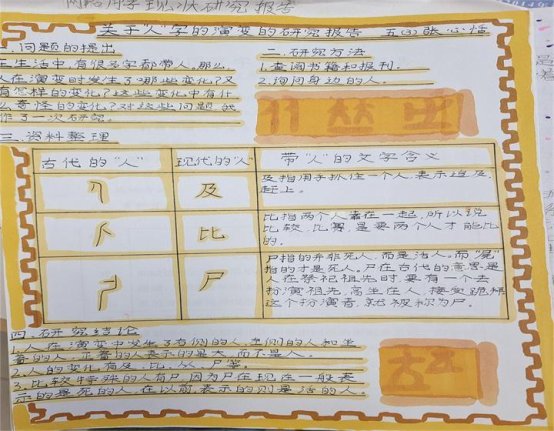 关于"人"字的演变的研究报告 五(3)张
一.问题的提出
生活中,有很多字都带人,那么
人在演变时发生了哪些变化?又
有怎样的变化?这些变化中有什
么奇怪的变化?对这些问题我
作了一次研究。
二.研究方法
1.查阅书籍和报刊.
2.询问身边的人。
三.资料整理
古代的"人" 现代的"人" 带"人"的文字含义
及 及指用手抓住一个人,表示追及
赶上。
比 比指两个人靠在一起,所以说
比较,比赛,是要两个人才能比
的。
尸 尸指的并非死人,而是活人。而"屍"
指的才是死人。尸在古代的意思是
人在祭祀祖先时,要有一个去
扮演祖先,高坐在人,接受跪拜
这个扮演者,就被称为尸。
四.研究结论
1.人在演变中发生了右侧的人,左侧的人和坐
着的人,正着的人表示的是大而不是人。
2.人的变化有及,比,从,尸等。
3.比较特殊的人有尸,因为尸在现在一般表
示的是死的人,在以前表示的则是活的人。